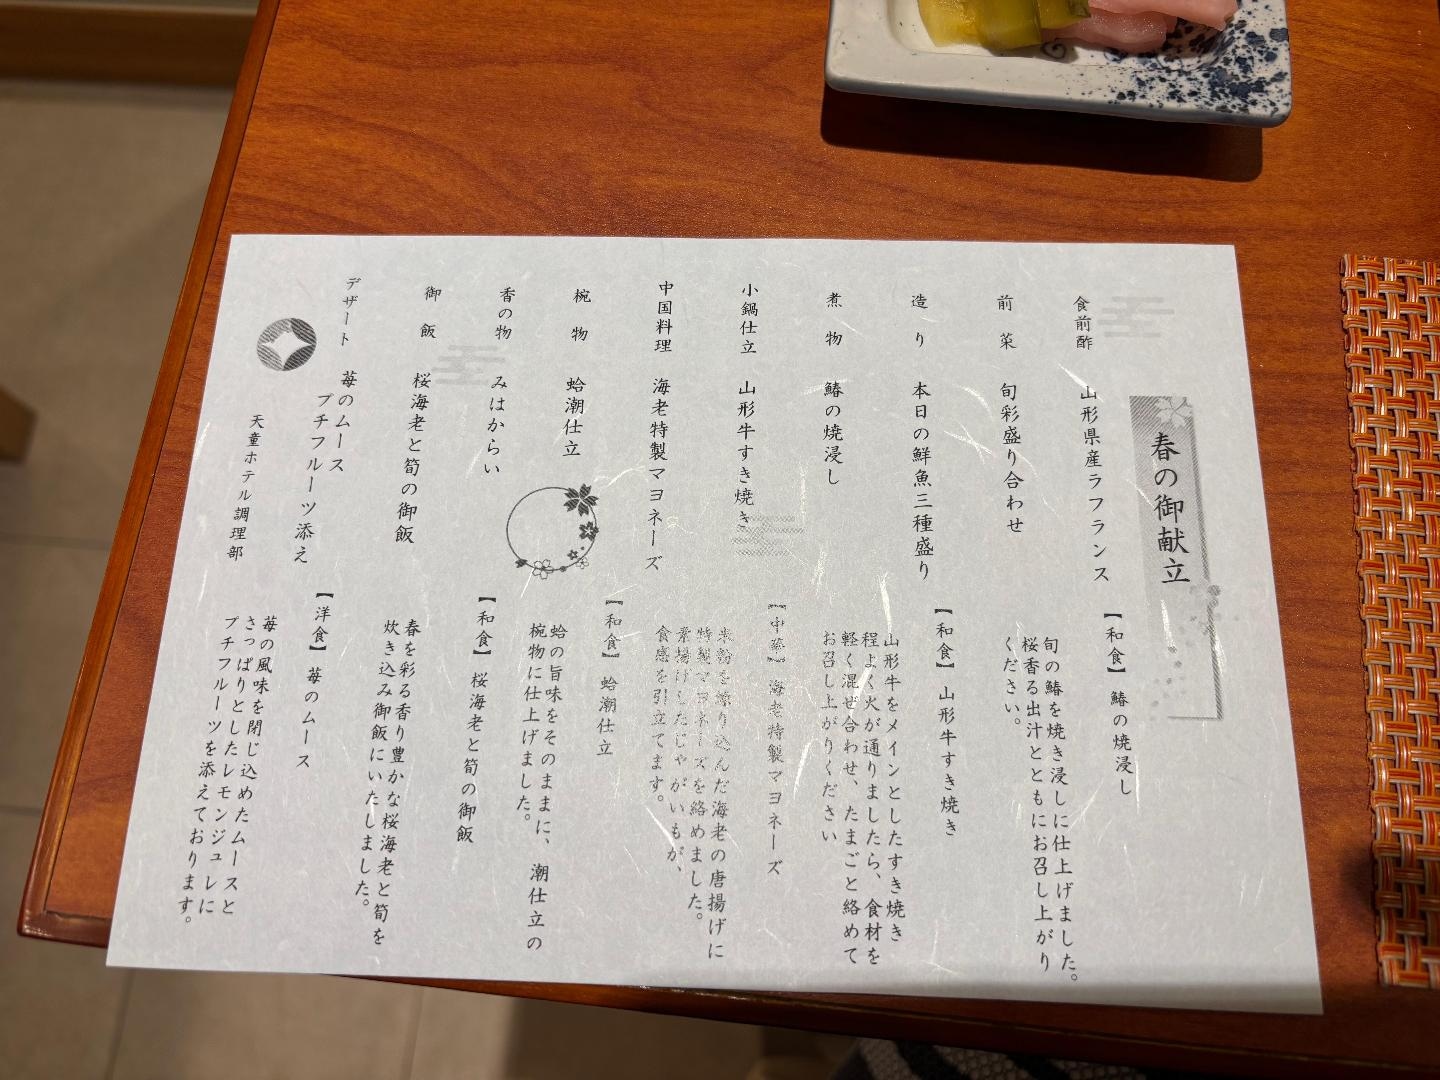 春の御献立
食前酢 山形県産ラフランス
前菜 旬彩盛り合わせ
造り 本日の鮮魚三種盛り
煮物 鰆の焼浸し
小鍋仕立 山形牛すき焼き
中国料理 海老特製マヨネーズ
椀物 蛤潮仕立
香の物 みはからい
御飯 桜海老と筍の御飯
デザート 苺のムース
プチフルーツ添え
天童ホテル調理部
【和食】 鰆の焼浸し
旬の鰆を焼き浸しに仕上げました。
桜香る出汁とともにお召し上がり
ください。
【和食】 山形牛すき焼き
山形牛をメインとしたすき焼き
程よく火が通りましたら、食材を
軽く混ぜ合わせ、たまごと絡めて
お召し上がりください
【中華】 海老特製マヨネーズ
米粉を練り込んだ海老の唐揚げに
特製マヨネーズを絡めました。
素揚げしたじゃがいもが、
食感を引立てます。
【和食】 蛤潮仕立
蛤の旨味をそのままに、潮仕立の
椀物に仕上げました。
【和食】 桜海老と筍の御飯
春を彩る香り豊かな桜海老と筍を
炊き込み御飯にいたしました。
【洋食】 苺のムース
苺の風味を閉じ込めたムースと
さっぱりとしたレモンジュレに
プチフルーツを添えております。